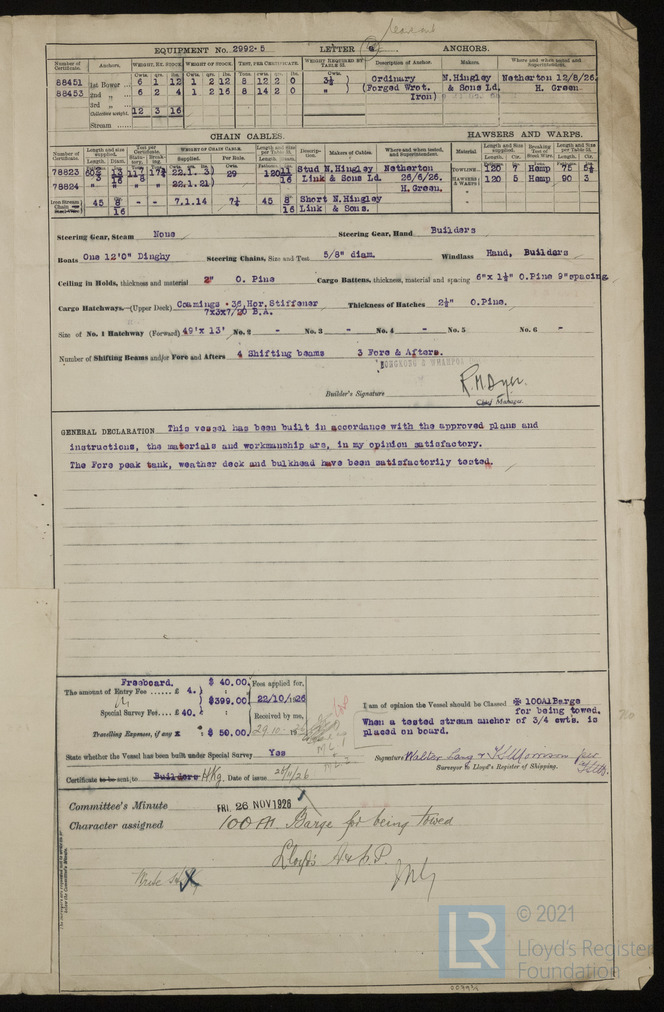 EQUIPMENT No. 2992·5 LETTER ANCHORS.
Number of Certificate. Anchors. WEIGHT, EX. STOCK. WEIGHT OF STOCK. TEST, PER CERTIFICATE. WEIGHT REQUIRED BY TABLE 22. Description of Anchor. Makers. Where and when tested and Superintendent.
Cwts. qrs. lbs. Cwts. qrs. lbs. Tons cwts. qrs. lbs. Cwts.
88451 1st Bower 6 1 12 1 2 12 8 12 2 0 3½ Ordinary N.Hingley Netherton 12/8/26.
88453 2nd „ 6 2 4 1 2 16 8 14 2 0 " (Forged Wrot. & Sons Ld. H. Green.
3rd „ Iron)
Collective weight. 12 3 16
Stream
CHAIN CABLES. HAWSERS AND WARPS.
Number of Certificate. Length and size supplied. Test per Certificate. WEIGHT OF CHAIN CABLE. Length and size per Table 22. Description. Makers of Cables. Where and when tested, and Superintendent. Material. Length and size supplied. Breaking Test of Steel Wire. Length and Size per Table 22.
Length. Diam. Statutory. Breaking. Supplied. Per Rule. Length. Diam. Length. Cir. Length. Cir.
78823 22.1. 3) 29 120 11/16 Stud N.Hingley Netherton TOWLINE 120 7 Hemp 75 5½
78824 " 22.1.21) Link & Sons Ld. 26/6/26. HAWSERS & WARPS 120 5 Hemp 90 3
H.Green.
Iron Stream Chain 45 8/16 - - 7.1.14 7¼ 45 8/16 Short N.Hingley
Link & Sons.
Steering Gear, Steam None Steering Gear, Hand Builders
Boats One 12'0" Dinghy Steering Chains, Size and Test 5/8" diam. Windlass Hand, Builders
Ceiling in Holds, thickness and material 2" O. Pine Cargo Battens, thickness, material and spacing 6"x 1½" O.Pine 9"spacing
Cargo Hatchways.—(Upper Deck) Coamings · 36,Hor.Stiffener Thickness of Hatches 2½" O.Pine.
7x3x7/20 B.A.
Size of No. 1 Hatchway (Forward) 49'x 13' No. 2 - No. 3 - No. 4 - No. 5 No. 6 -
Number of Shifting Beams and/or Fore and Afters 4 Shifting beams 3 Fore & Afters.
HONGKONG & WHAMPOA
Builder's Signature R M Dyer.
Chief Manager.
GENERAL DECLARATION This vessel has been built in accordance with the approved plans and
instructions, the materials and workmanship are, in my opinion satisfactory.
The Fore peak tank, weather deck and bulkhead have been satisfactorily tested.
Freeboard. $ 40.00. Fees applied for,
The amount of Entry Fee ...... £ 4. ) 22/10/1926
$399.00.
Special Survey Fee.... £ 40. Received by me,
Travelling Expenses, if any $ 50.00. 29.10.
I am of opinion the Vessel should be Classed ✠ 100A1 Barge
for being towed.
When a tested stream anchor of 3/4 cwts. is
placed on board.
State whether the Vessel has been built under Special Survey Yes
Signature Walter Lang
Surveyor to Lloyd's Register of Shipping.
Certificate to be sent to Builders HKg. Date of issue 26/11/26
Committee's Minute FRI. 26 NOV 1926
Character assigned 100A1 Barge for being towed
Lloyd's A & C.P.
© 2021
LR
Lloyd's Register
Foundation